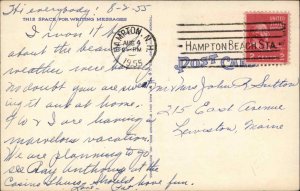 Hi everybody! 8-2-55
THIS SPACE FOR WRITING MESSAGES
I won't
about the beautiful
weather were having
no doubt you are sweat
ing it out at home.
We are having a
marvelous vacation.
We are planning to go
see Ray Anthony at the
Casino Thurs. Should
have fun.
Love, Pat
HAMPTON, N.H.
AUG 4
PM
1955
HAMPTON BEACH STA.
POST CARD
Mr & Mrs John R Sutton
215 East Avenue
Lewiston, Maine